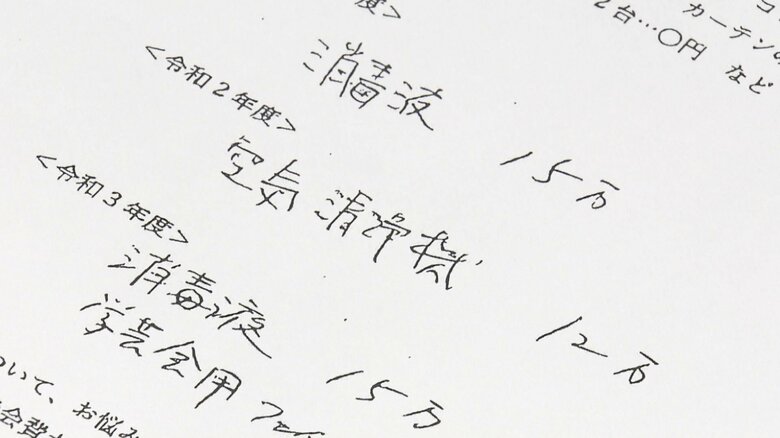 コ
カーテンの
2台…〇円 など
度>
消毒液 15万
<令和2年度>
空気清浄機 12万
<令和3年度>
消毒液 15万
学芸会用
ついて、お悩み
会費